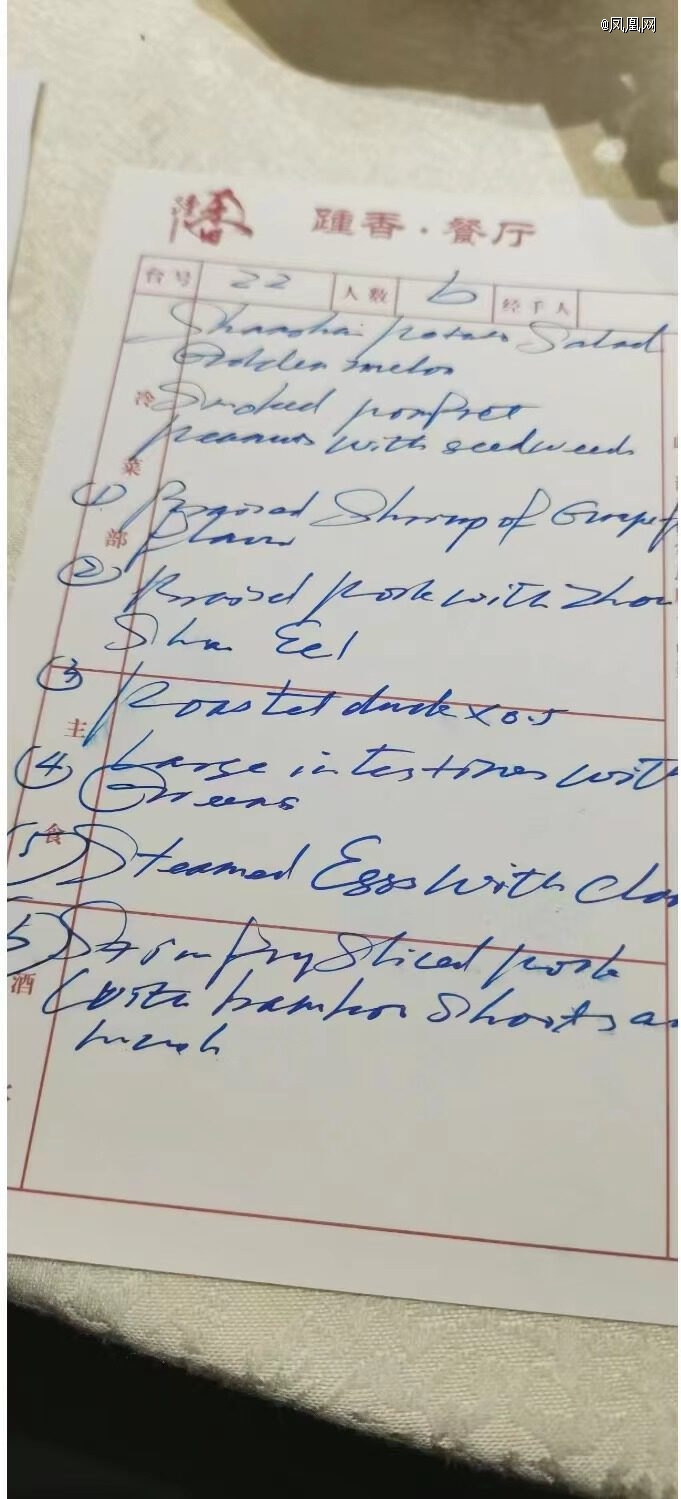 @凤凰网
踵香·餐厅
台号 22 人数 6 经手人
Shanghai potato Salad
Golden melon
冷 Smoked pomfret
peanuts with seedweeds
菜
① Braised Shrimp of Grapef
部 flavor
② Braised pork with Zhou
Shan Eel
③ Roasted duck x 0.5
主
④ Large intestines with
Greens
食
⑤ Steamed Eggs with cla
6 Stir fry Sliced pork
酒 with bamboo Shoots a
mush